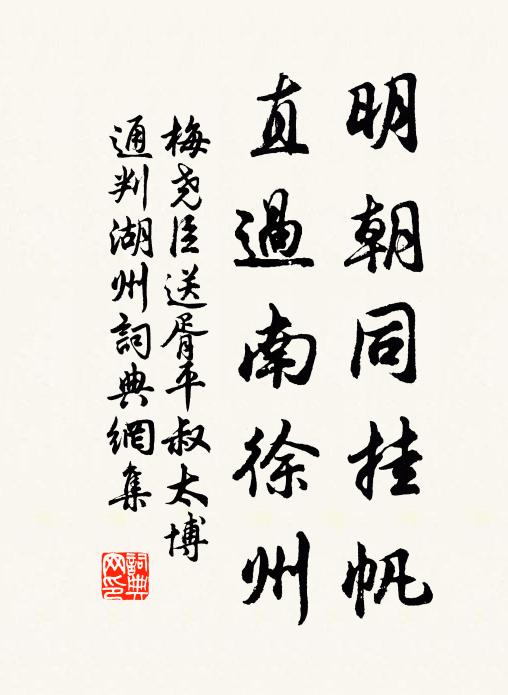 明朝同挂帆
直過南徐州
梅堯臣送胥平叔太博
通判湖州詞典網集
詞典
网印